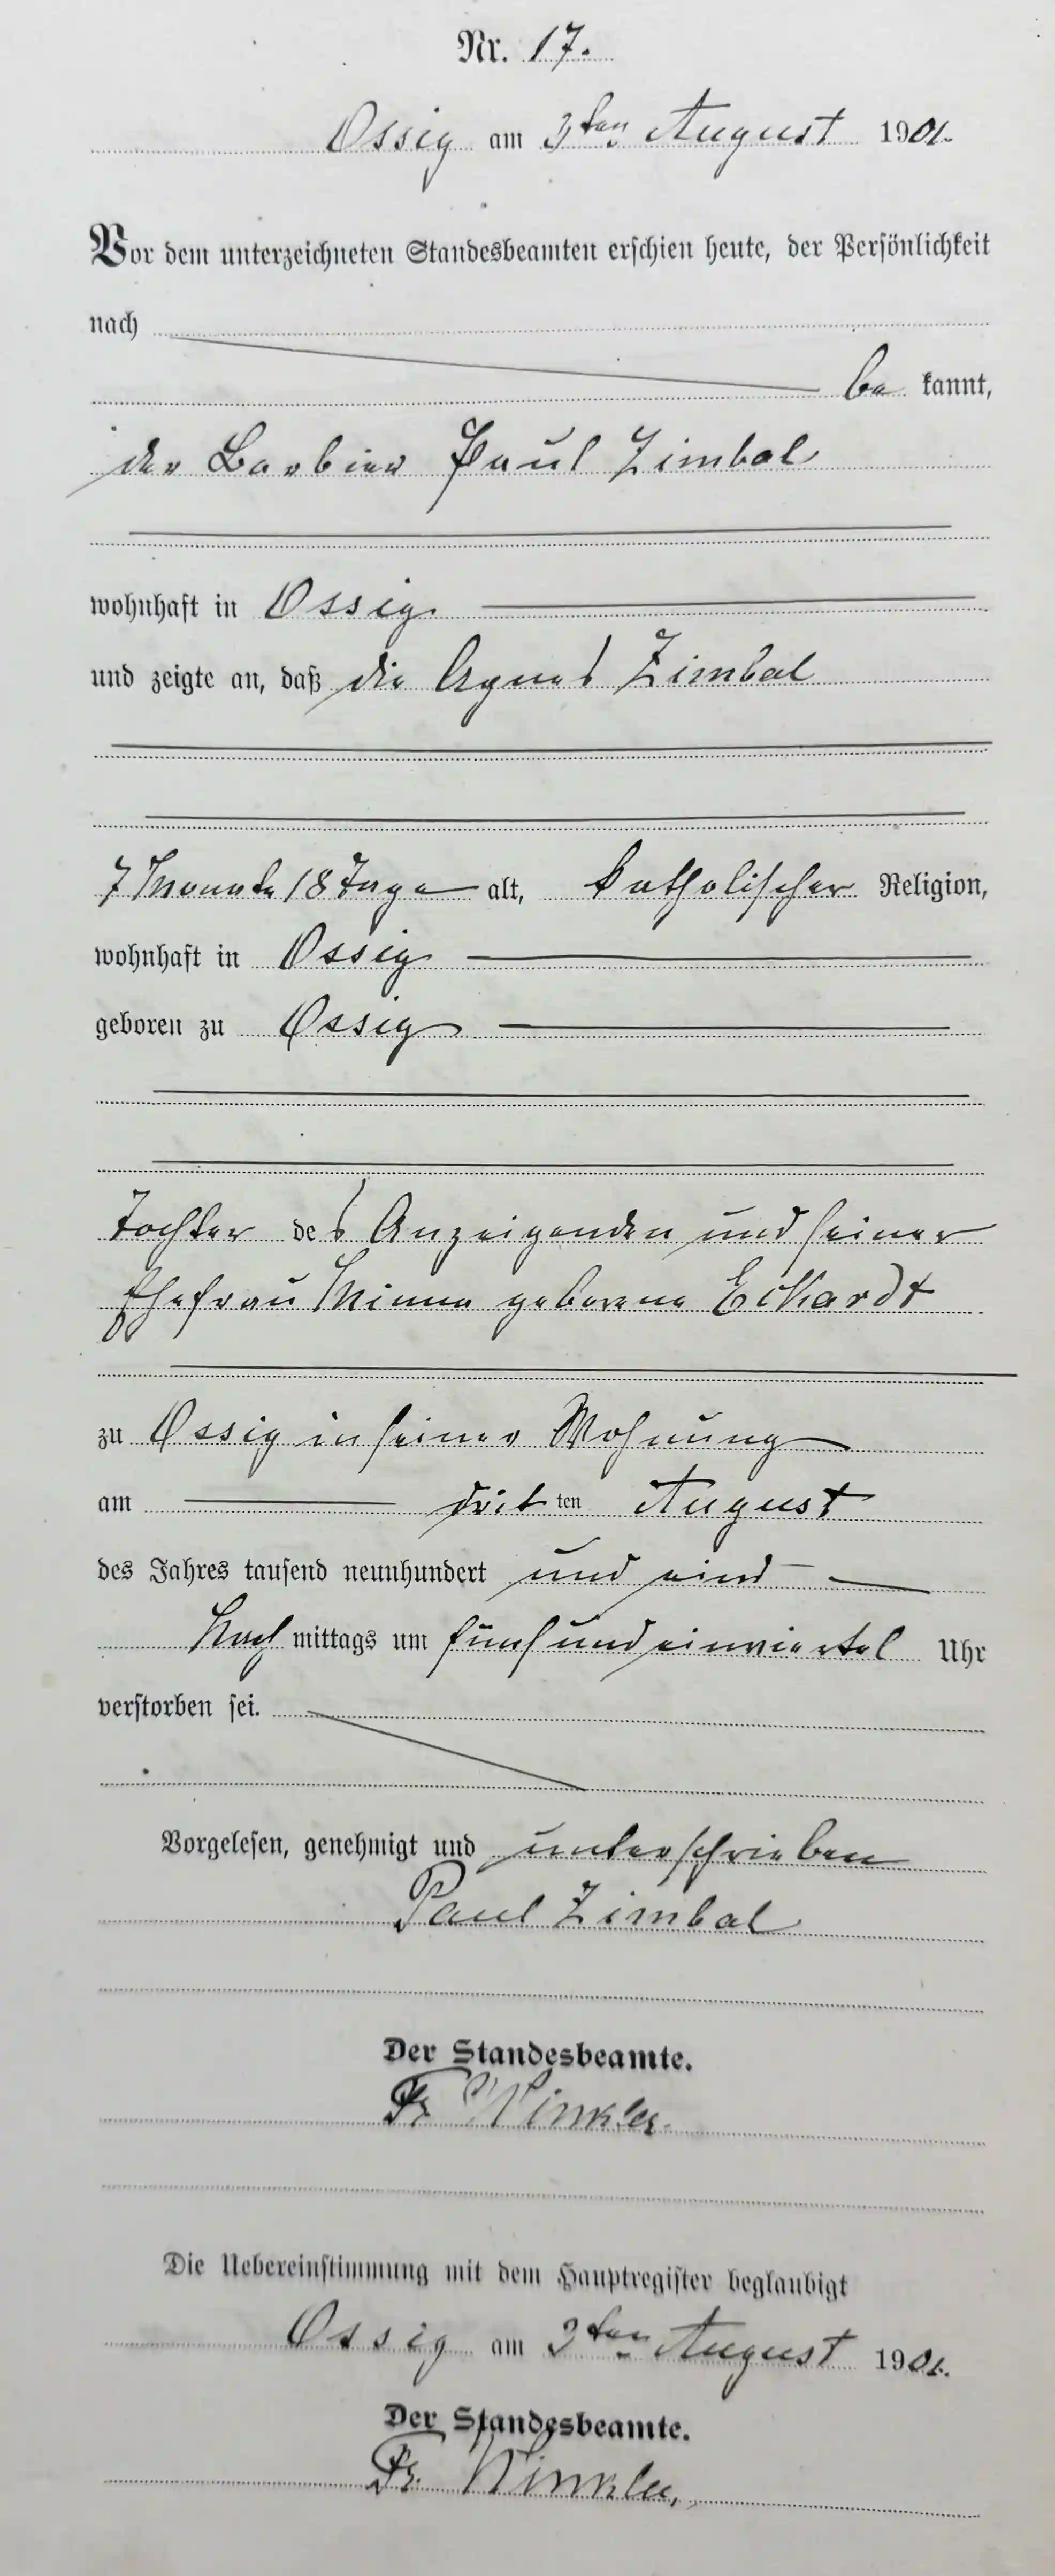 Nr. 17.
Ossig am 3ten August 1901.
Vor dem unterzeichneten Standesbeamten erschien heute, der Persönlichkeit
nach
be kannt,
der Barbier Paul Zimbal
wohnhaft in Ossig
und zeigte an, daß die Agnes Zimbal
7 Monate 18 Tage alt, katholischer Religion,
wohnhaft in Ossig
geboren zu Ossig
Tochter des Anzeigenden und seiner
Ehefrau Minna geborene Eckardt
zu Ossig in seiner Wohnung
am drit ten August
des Jahres tausend neunhundert und eins
Nach mittags um fünf und einviertel Uhr
verstorben sei.
Vorgelesen, genehmigt und unterschrieben
Paul Zimbal
Der Standesbeamte.
Fr. Winkler.
Die Uebereinstimmung mit dem Hauptregister beglaubigt
Ossig am 3ten August 1901.
Der Standesbeamte.
Fr. Winkler.